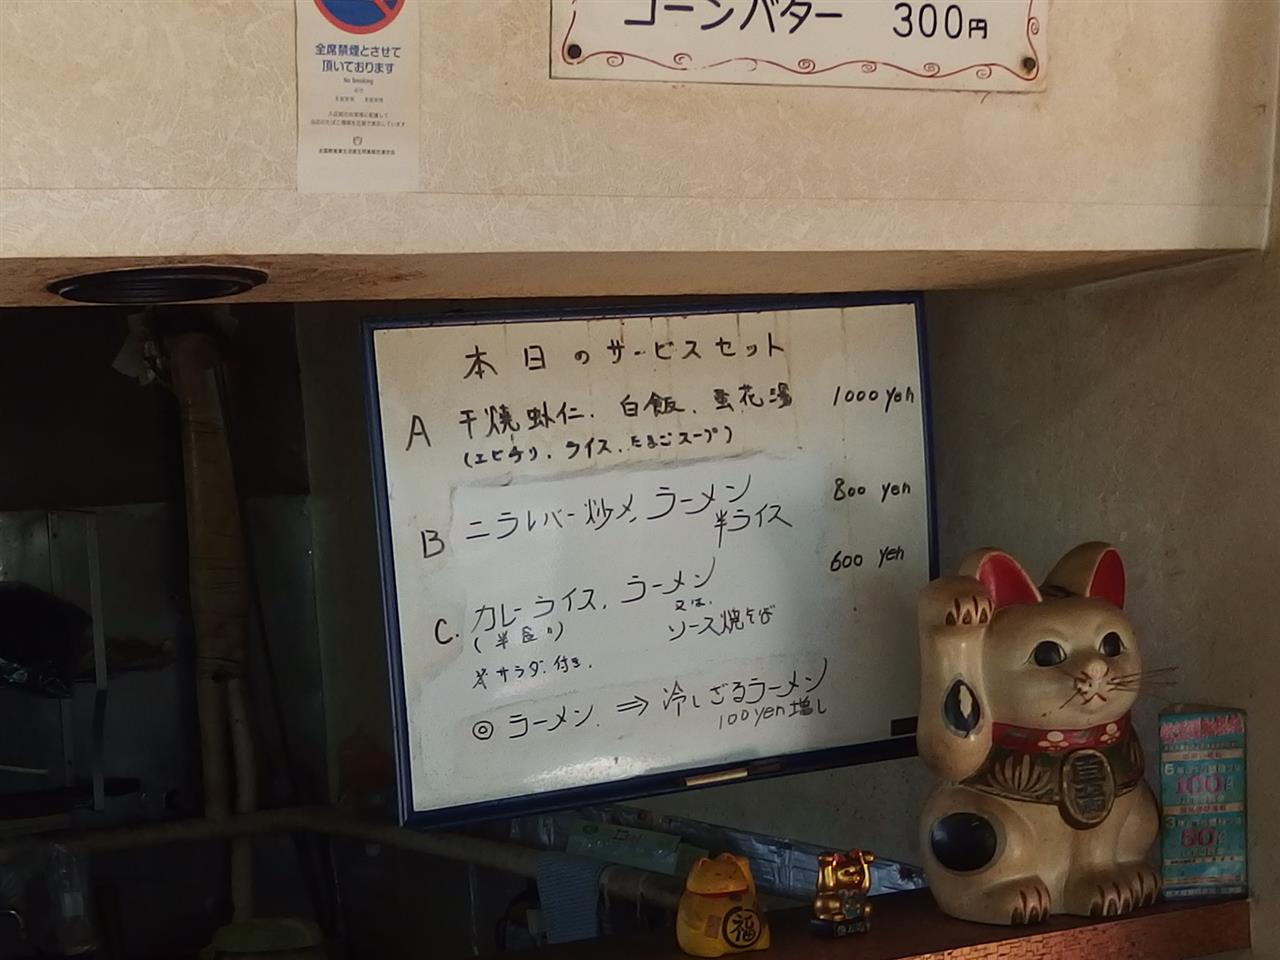 コーンバター 300円
全席禁煙とさせて
頂いております
No Smoking
本日のサービスセット
A 干焼虾仁、白飯、蛋花湯 1000 yen
(エビチリ、ライス、たまごスープ)
B ニラレバー炒メ、ラーメン 800 yen
半ライス
C. カレーライス、ラーメン 600 yen
又は、
ソース焼そば
※サラダ付き、
◎ラーメン、⇒冷しざるラーメン
100yen増し
福
100
50